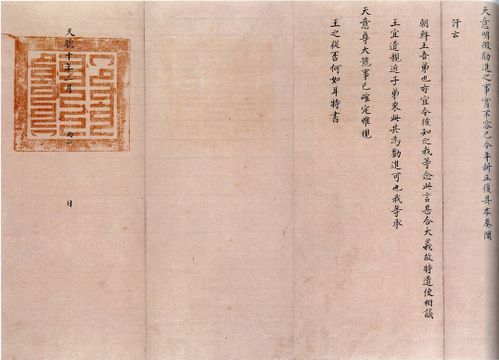 天意明徵勸進之事實不容已今年新正復具本奏聞
汗云
朝鮮王吾弟也亦宜令彼知之我等念此言甚合大義故特遣使相議
王宜遣親近子弟來此共為勸進可也我等承
天意尊大號事已確定惟視
王之從否何如耳特書
天聰十年二月 日